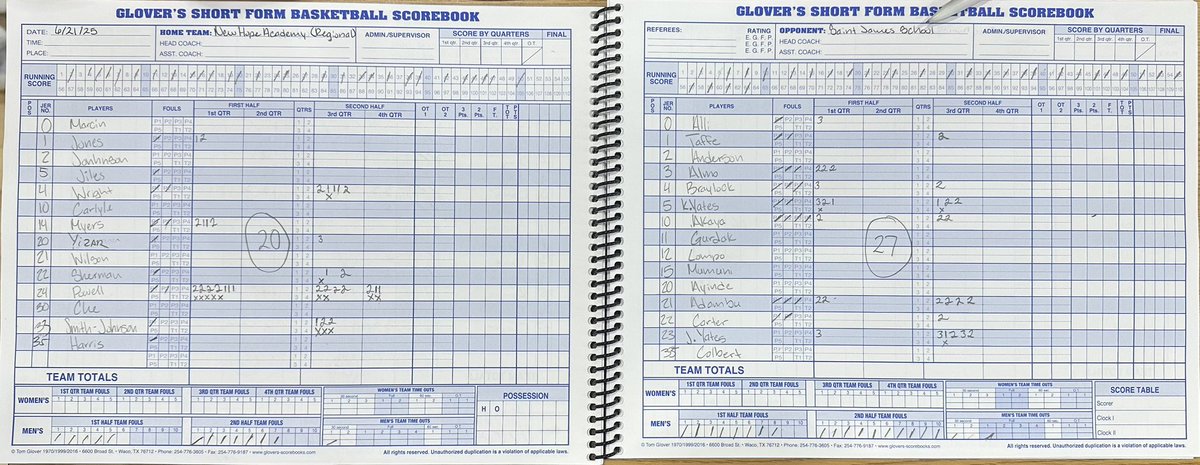 GLOVER'S SHORT FORM BASKETBALL SCOREBOOK
DATE: 6/21/25 HOME TEAM: New Hope Academy (Regional) ADMIN/SUPERVISOR SCORE BY QUARTERS FINAL
TIME: HEAD COACH: 1st qtr. 2nd qtr. 3rd qtr. 4th qtr. O.T.
PLACE: ASST. COACH:
RUNNING SCORE
POS JER NO. PLAYERS FOULS FIRST HALF QTRS SECOND HALF OT 1 OT 2 3 Pts. 2 Pts. F T. TOT PTS
1st QTR 2nd QTR 3rd QTR 4th QTR
0 Marcin
1 Jones 12
2 Jonhnson
5 Jiles
4 Wright 21112
x
10 Carlyle
14 Myers 2112
20 Yizar 3
21 Wilson
20
22 Sherman 1 2
x
24 Powell 2222111 2222 211
xxxxx xx xx
30 Che
33 Smith-Johnson 122
xxx
35 Harris
TEAM TOTALS
1ST QTR TEAM FOULS 2ND QTR TEAM FOULS 3RD QTR TEAM FOULS 4TH QTR TEAM FOULS WOMEN'S TEAM TIME OUTS POSSESSION
WOMEN'S 1 2 3 4 5 1 2 3 4 5 1 2 3 4 5 1 2 3 4 5 H O
1ST HALF TEAM FOULS 2ND HALF TEAM FOULS MEN'S TEAM TIME OUTS
MEN'S
© Tom Glover 1970/1999/2016 • 6600 Broad St. • Waco, TX 76712 • Phone: 254-776-3605 • Fax: 254-776-9187 • www.glovers-scorebooks.com All rights reserved. Unauthorized duplication is a violation of applicable laws.
GLOVER'S SHORT FORM BASKETBALL SCOREBOOK
REFEREES: RATING OPPONENT: Saint James School ADMIN/SUPERVISOR SCORE BY QUARTERS FINAL
E. G. F. P. HEAD COACH: 1st qtr. 2nd qtr. 3rd qtr. 4th qtr. O.T.
E. G. F. P. ASST. COACH:
E. G. F. P.
RUNNING SCORE
POS JER NO. PLAYERS FOULS FIRST HALF QTRS SECOND HALF OT 1 OT 2 3 Pts. 2 Pts. F T. TOT PTS
1st QTR 2nd QTR 3rd QTR 4th QTR
0 Ali 3
1 Taffe 2
2 Anderson
3 Almo 222
4 Braylock 3 2
5 K.Yates 321 122
x x
10 Akaya 2 22
11 Gurdak
27
12 Lompo
15 Mumuni
20 Ayinde
21 Adambu 22 2222
22 Carter 2
23 J. Yates 3 31232
x
35 Colbert
TEAM TOTALS
1ST QTR TEAM FOULS 2ND QTR TEAM FOULS 3RD QTR TEAM FOULS 4TH QTR TEAM FOULS WOMEN'S TEAM TIME OUTS SCORE TABLE
WOMEN'S 1 2 3 4 5 1 2 3 4 5 1 2 3 4 5 1 2 3 4 5 Scorer
1ST HALF TEAM FOULS 2ND HALF TEAM FOULS MEN'S TEAM TIME OUTS Clock I
MEN'S Clock II
© Tom Glover 1970/1999/2016 • 6600 Broad St. • Waco, TX 76712 • Phone: 254-776-3605 • Fax: 254-776-9187 • www.glovers-scorebooks.com All rights reserved. Unauthorized duplication is a violation of applicable laws.